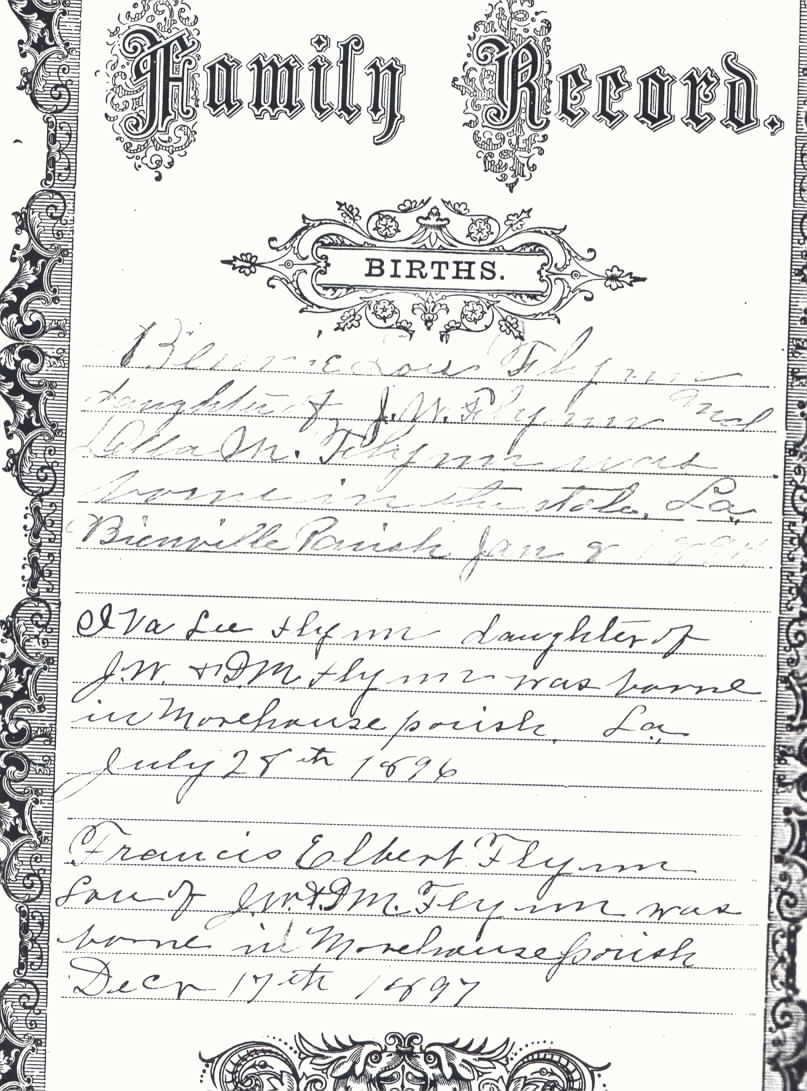 Family Record.
BIRTHS.
Flynn
daughter of J. W. Flynn and
M. Flynn was
borne in the state, La,
Bienville Parish Jan
Iva Lee Flynn daughter of
J. W. & D M Flynn was borne
in Morehouse parish, La,
July 28th 1896
Francis Elbert Flynn
Son of J. W. & D M. Flynn was
borne in Morehouse parish
Decr 17th 1897